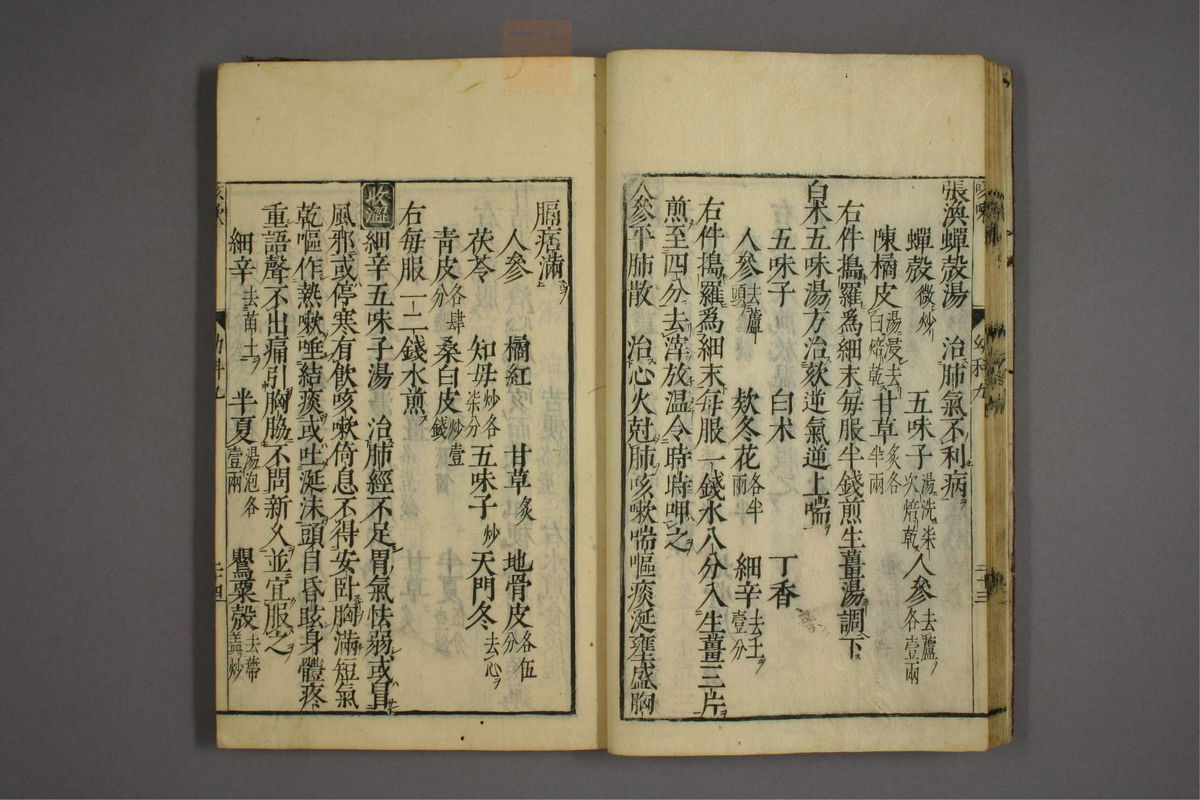 張渙蟬殼湯　治肺氣不利病
蟬殼微炒　五味子湯洗柒次焙乾　人參去蘆各壹兩
陳橘皮湯浸去白焙乾　甘草炙各半兩
右件搗羅爲細末每服半錢煎生薑湯調下
白术五味湯方治欬逆氣逆上喘
五味子　白术　丁香
人參去蘆頭　欵冬花各半兩　細辛壹分去土
右件搗羅爲細末每服一錢水八分入生薑三片
煎至四分去滓放温令時時呷之
人參平肺散　治心火尅肺咳嗽喘嘔痰涎壅盛胸
幼科九
三十三
膈痞滿
人參　橘紅　甘草炙　地骨皮各伍分
茯苓　知母炒各柒分　五味子炒　天門冬去心
青皮各肆分　桑白皮炒壹錢
右每服一二錢水煎
收澁　細辛五味子湯　治肺經不足胃氣怯弱或冒
風邪或停寒有飲咳嗽倚息不得安卧胸滿短氣
乾嘔作熱嗽唾結痰或吐涎沫頭目昏眩身體疼
重語聲不出痛引胸脇不問新久並宜服之
細辛去苗土　半夏湯泡各壹兩　罌粟殼去蒂蓋炒